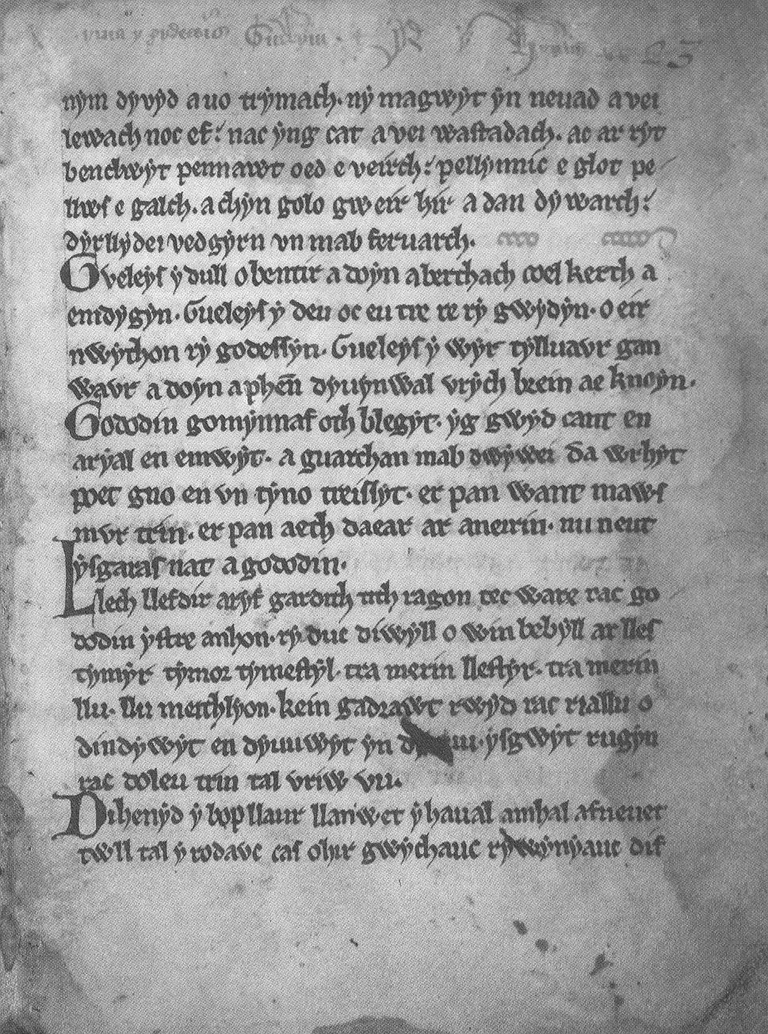 nym dyvyd a uo trymach. ny magwyt yn neuad a vei
lewach noc ef: nac yng cat a vei wastadach. ac ar ryt
benclwyt pennawt oed e veirch: pellynnic e glot pe
llws e galch. a chyn golo gweir hir a dan dywarch:
dyrllydei vedgyrn vn mab feruarch.
Gveleys y dull o bentir a doyn aberthach coel kerth a
emdygyn. Gueleys y deu oc eu tre re ry gwydyn. o eir
nwython ry godessyn. Gueleys y wyr tylluavr gan
wavr a doyn a phen dyuynwal vrych brein ae knoyn.
Gododin gomynnaf oth blegyt. yg gwyd cant en
aryal en emwyt. a guarchan mab dwywei da wrhyt
poet gno en vn tyno treissyt. er pan want maws
mvr trin. er pan aeth daear ar aneirin. nu neut
ysgaras nat a gododin.
Llech llefdir aryf gardith tith ragon tec ware rac go
dodin ystre anhon. ry duc diwyll o win bebyll ar lles
tymyr tymor tymestyl. tra merin llestyr. tra merin
llu. llu meithlyon. kein gadrawt rwyd rac riallu o
dindywyt en dyuuwyt yn ysgwyt rugyn
rac doleu trin tal vriw vu.
Dihenyd y bop llaur llanwet y haual amhal afneuet
twll tal y rodavc cas ohir gwychauc rywynyauc dif